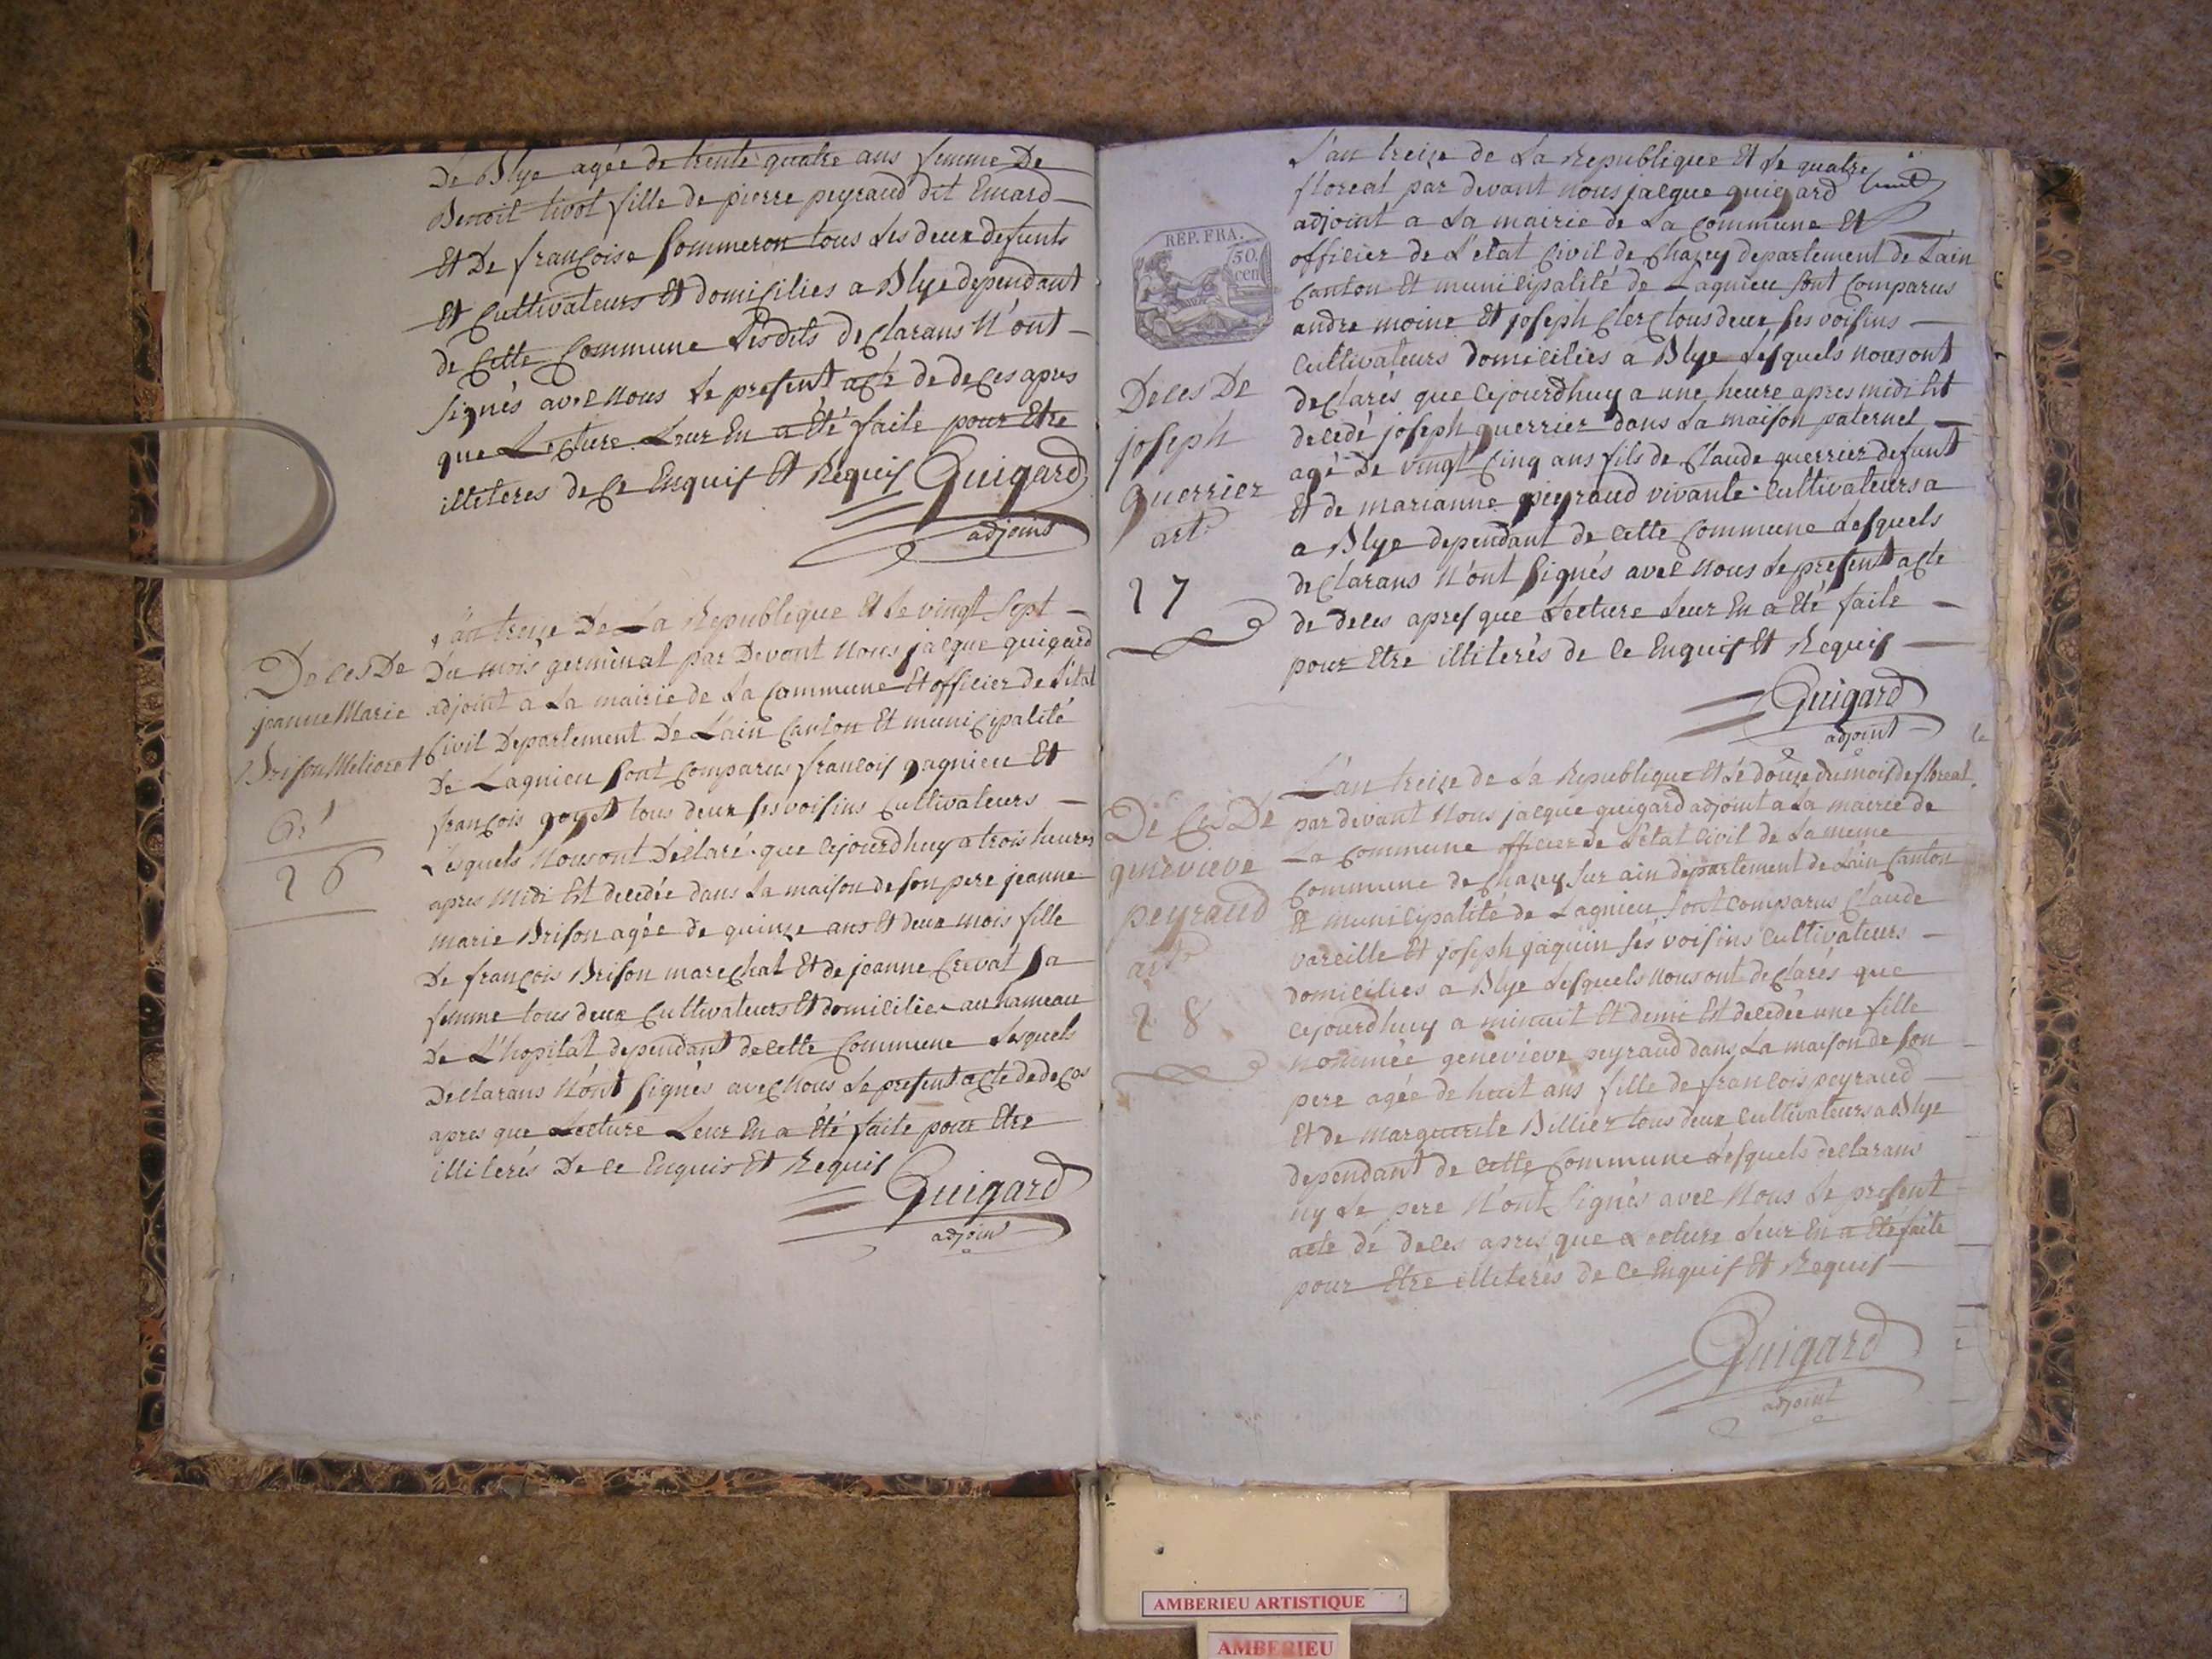 De Blye agée de trente quatre ans femme De
Benoit tivot fille de pierre peyraud dit Emard
Et De françoise Sommeron tous les deux defunts
Et Cultivateurs Et domicilies a Blye dependant
de Cette Commune Lesdits declarans N'ont
signés avec nous le present acte de deces apres
que Lecture Leur En a Eté faite pour Etre
illiteres de Ce Enquis Et Requis Guigard
adjoint
L'an treize De La Republique Et Le vingt sept
Du mois germinal par Devant Nous jacque guigard
adjoint a La mairie de La Commune Et officier de L'état
Civil Departement De L'ain Canton Et municipalité
De Lagnieu sont Comparus francois gagnieu Et
françois goyet tous deux ses voisins Cultivateurs
Lesquels Nous ont Déclaré que Cejourdhuy a trois heures
apres Midi Est decedée dans La maison de son pere jeanne
marie Brison agée de quinze ans Et deux mois fille
De françois Brison marechal Et de joanne Crevat sa
femme tous deux Cultivateurs Et domicilies au hameau
De L'hopital dependant de Cette Commune Lesquels
Declarans N'ont signés avec Nous Le present acte de deces
apres que Lecture Leur En a Eté faite pour Etre
illiterés De Ce Enquis Et Requis
Guigard
adjoint
Deces De
jeanne Marie
Brison
26
L'an treize de La Republique Et Le quatre
floreal par devant nous jacque guigard
adjoint a La mairie de La Commune Et
officier de L'etat Civil de Chazey departement de L'ain
Canton Et municipalité de Lagnieu sont Comparus
andre moine Et joseph Clerc tous deux ses voisins
Cultivateurs domicilies a Blye Lesquels nous ont
declarés que Cejourdhuy a une heure apres midi Est
decedé joseph guerrier dans La maison paternel
agé De vingt Cinq ans fils de Claude guerrier defunt
Et de marianne peyraud vivante Cultivateurs a
a Blye dependant de Cette Commune Lesquels
declarans N'ont signés avec nous Le present acte
de deces apres que Lecture Leur En a Eté faite
pour Etre illiterés de Ce Enquis Et Requis
Guigard
adjoint
REP. FRA.
50.
cent
Deces De
joseph
Guerrier
art.
27
L'an treize de La Republique Et Le douze du mois de floreal
par devant Nous jacque guigard adjoint a La mairie de
La Commune officier de L'etat Civil de La meme
Commune de Chazey sur ain departement de L'ain Canton
Et municipalité de Lagnieu sont Comparus Claude
vareille Et joseph jaquin ses voisins Cultivateurs
domicilies a Blye Lesquels Nous ont declarés que
Cejourdhuy a minuit Et demi Est decedée une fille
nommée genevieve peyraud dans La maison de son
pere agée de huit ans fille de francois peyraud
Et de Marguerite Billier tous deux Cultivateurs a Blye
dependant de Cette Commune Lesquels declarans
ny Le pere N'ont signés avec Nous Le present
acte dé deces apres que Lecture Leur En a Eté faite
pour Etre illiterés de Ce Enquis Et Requis
Guigard
adjoint
De Ces De
genevieve
peyraud
art.
28
AMBERIEU ARTISTIQUE
AMBERIEU